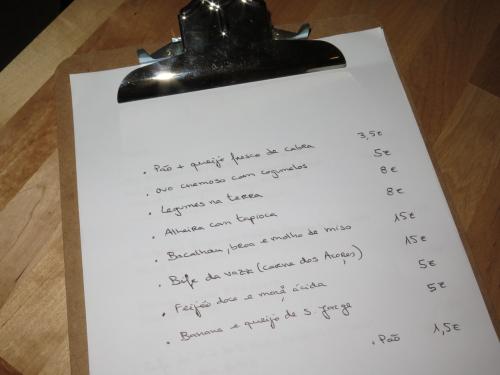 . Pão + queijo fresco de cabra 3,5€
. ovo cremoso com cogumelos 5€
. Legumes na terra 8€
. Alheira com tapioca 8€
. Bacalhau, broa e molho de miso 15€
. Bife da vazia (carne dos Açores) 15€
. Feijão doce e maçã ácida 5€
. Banana e queijo de S. Jorge 5€
. Pão 1,5€